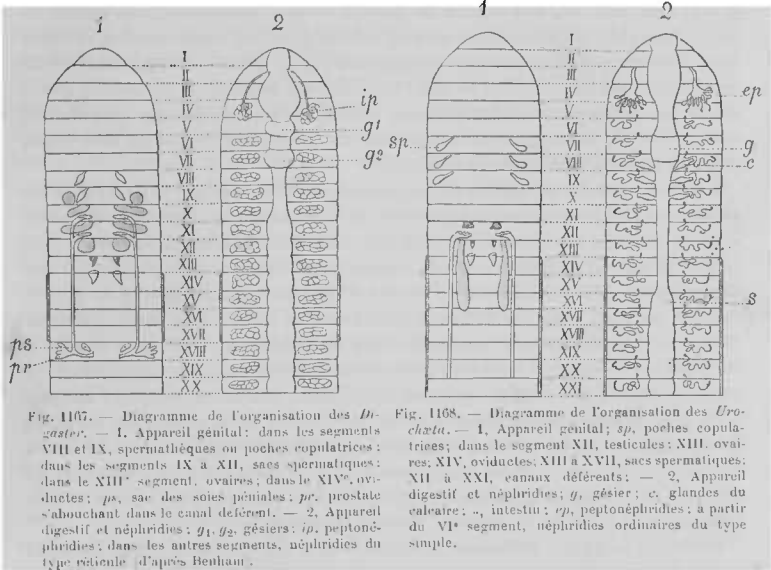 1
2
I
II
III
IV
V
VI
VII
VIII
IX
X
XI
XII
XIII
XIV
XV
XVI
XVII
XVIII
XIX
XX
ip
g1
g2
ps
pr
Fig. 1167. — Diagramme de l'organisation des Di-
gaster. — 1. Appareil génital: dans les segments
VIII et IX, spermathèques ou poches copulatrices;
dans les segments IX à XII, sacs spermatiques;
dans le XIIIe segment, ovaires; dans le XIVe, ovi-
ductes; ps, sac des soies péniales; pr, prostate
s'abouchant dans le canal déférent. — 2, Appareil
digestif et néphridies; g1, g2, gésiers; ip, peptoné-
phridies; dans les autres segments, néphridies du
type réticulé d'après Benham.
1
2
I
II
III
IV
V
VI
VII
VIII
IX
X
XI
XII
XIII
XIV
XV
XVI
XVII
XVIII
XIX
XX
XXI
sp
ep
g
c
s
Fig. 1168. — Diagramme de l'organisation des Uro-
chæta. — 1, Appareil génital; sp, poches copula-
trices; dans le segment XII, testicules; XIII, ovai-
res; XIV, oviductes; XIII à XVII, sacs spermatiques;
XII à XXI, canaux déférents; — 2, Appareil
digestif et néphridies; g, gésier; c, glandes du
calcaire; intestin; ep, peptonéphridies; à partir
du VIe segment, néphridies ordinaires du type
simple.